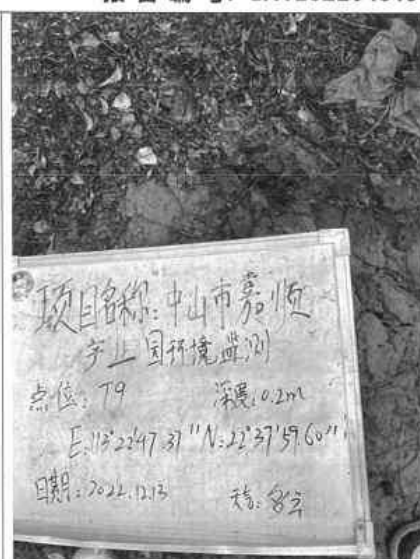 项目名称:中山市嘉顺
产业园环境监测
点位:T9 深度:0.2m
E:113°22'47.37" N:22°37'59.60"
日期:2022.12.13 天气:多云